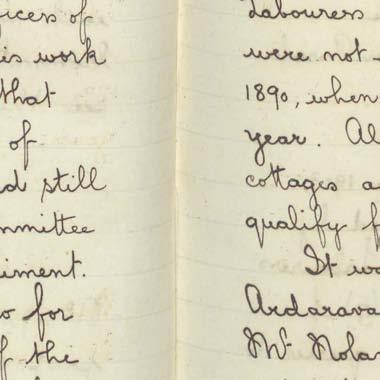 fices of
is work
that
of
d still
mmittee
iment.
o for
f the
Labourers
were not
1890, when
year. Al
cottages a
qualify f
It wa
Ardarava
Mr. Nolan